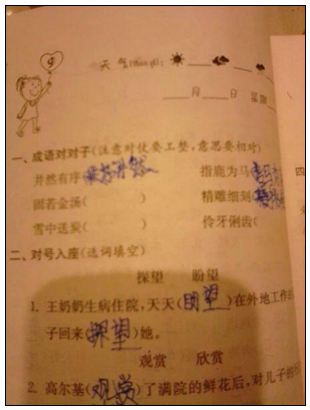 9
天 气(tiān qì):
月 日 星期
一、成语对对子(注意对仗要工整,意思要相对)
井然有序( 指鹿为马(
固若金汤( ) 精雕细刻(
雪中送炭( ) 伶牙俐齿(
二、对号入座(选词填空)
探望 盼望
1. 王奶奶生病住院,天天(盼望)在外地工作的
子回来(探望)她。
观赏 欣赏
2. 高尔基(观赏)了满院的鲜花后,对儿子的